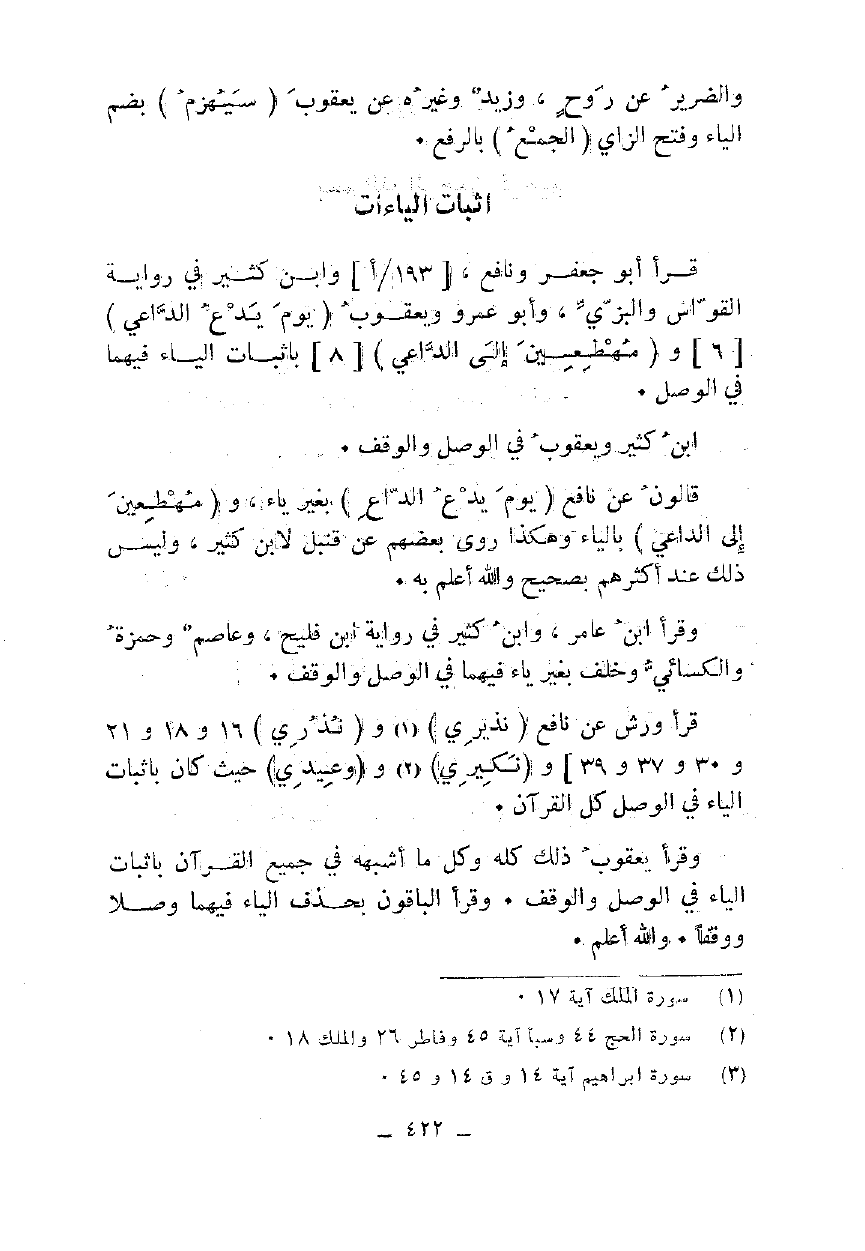 والضريرُ عن رَوحٍ ، وزيدٌ وغيرُه عن يعقوبَ ( سَيُهزمُ ) بضم
الياء وفتح الزاي ( الجمْعُ ) بالرفع .
اثبات الياءات
قرأ أبو جعفر ونافع ، [ ١٩٣/أ ] وابن كثير في رواية
القوّاس والبزّيّ ، وأبو عمرو ويعقوبُ ( يومَ يَدْعُ الدَّاعي )
[ ٦ ] و ( مُهْطِعِينَ إلَى الدَّاعي ) [ ٨ ] باثبات الياء فيهما
في الوصل .
ابنُ كثير ويعقوبُ في الوصل والوقف .
قالونُ عن نافع ( يومَ يدْعُ الدّاعِ ) بغير ياء ، و ( مُهْطِعينَ
إلى الداعي ) بالياء وهكذا روى بعضهم عن قنبل لابن كثير ، وليس
ذلك عند أكثرهم بصحيح والله أعلم به .
وقرأ ابنُ عامر ، وابنُ كثير في رواية ابن فليح ، وعاصمٌ وحمزةُ
والكسائيُّ وخلف بغير ياء فيهما في الوصل والوقف .
قرأ ورش عن نافع ( نذيرِي ) (١) و ( نُذُرِي ) ١٦ و ١٨ و ٢١
و ٣٠ و ٣٧ و ٣٩ ] و (نَكِيرِي) (٢) و (وعِيدِي) حيث كان باثبات
الياء في الوصل كل القرآن .
وقرأ يعقوبُ ذلك كله وكل ما أشبهه في جميع القرآن باثبات
الياء في الوصل والوقف . وقرأ الباقون بحذف الياء فيهما وصلا
ووقفاً . والله أعلم .
(١) سورة الملك آية ١٧ .
(٢) سورة الحج ٤٤ وسبأ آية ٤٥ وفاطر ٢٦ والملك ١٨ .
(٣) سورة ابراهيم آية ١٤ و ق ١٤ و ٤٥ .
ـ ٤٢٢ ـ